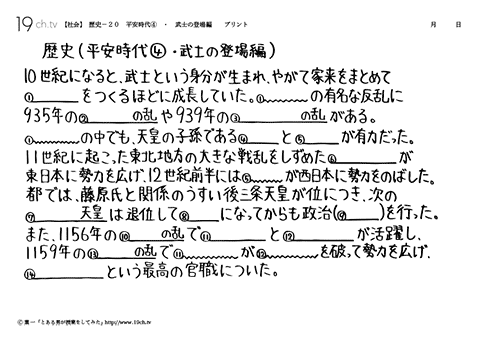 19 ch.tv 【社会】 歴史－20 平安時代④ ・ 武士の登場編 プリント 月 日
歴史(平安時代④・武士の登場編)
10世紀になると、武士という身分が生まれ、やがて家来をまとめて
① をつくるほどに成長していった。① の有名な反乱に
935年の② の乱や939年の③ の乱がある。
① の中でも、天皇の子孫である④ と⑤ が有力だった。
11世紀に起こった東北地方の大きな戦乱をしずめた⑥ が
東日本に勢力を広げ、12世紀前半には⑤ が西日本に勢力をのばした。
都では、藤原氏と関係のうすい後三条天皇が位につき、次の
⑦ 天皇は退位して⑧ になってからも政治(⑨ )を行った。
また、1156年の⑩ の乱で⑪ と⑫ が活躍し、
1159年の⑬ の乱で⑪ が⑫ を破って勢力を広げ、
⑭ という最高の官職についた。
© 葉一「とある男が授業をしてみた」http://www.19ch.tv